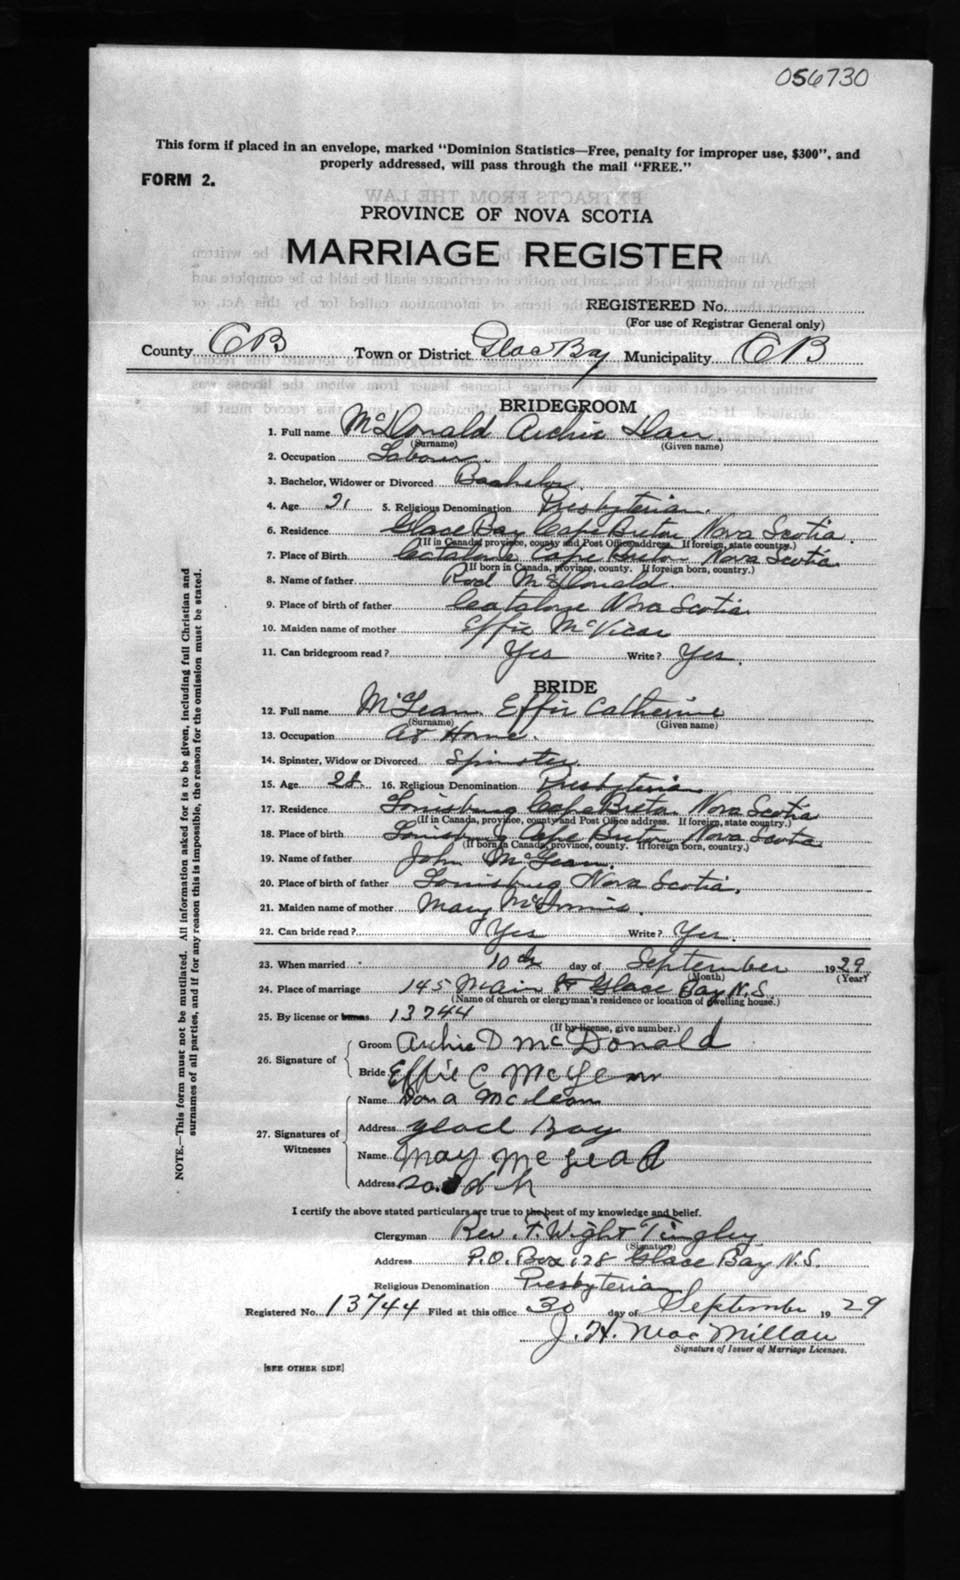 056730
This form if placed in an envelope, marked "Dominion Statistics—Free, penalty for improper use, $300", and
properly addressed, will pass through the mail "FREE."
FORM 2.
PROVINCE OF NOVA SCOTIA
MARRIAGE REGISTER
REGISTERED No.
(For use of Registrar General only)
County CB Town or District Glace Bay Municipality CB
BRIDEGROOM
1. Full name McDonald Archie Dan
(Surname) (Given name)
2. Occupation Laborer.
3. Bachelor, Widower or Divorced Bachelor.
4. Age 21 5. Religious Denomination Presbyterian.
6. Residence Glace Bay Cape Breton Nova Scotia.
(If in Canada, province, county and Post Office address. If foreign, state country.)
7. Place of Birth Catalone Cape Breton Nova Scotia
(If born in Canada, province, county. If foreign born, country.)
8. Name of father Rod McDonald
9. Place of birth of father Catalone Nova Scotia
10. Maiden name of mother Effie McVicar
11. Can bridegroom read? Yes Write? Yes.
BRIDE
12. Full name McLean Effie Catherine
(Surname) (Given name)
13. Occupation At Home.
14. Spinster, Widow or Divorced Spinster
15. Age 28. 16. Religious Denomination Presbyterian
17. Residence Louisburg Cape Breton Nova Scotia
(If in Canada, province, county and Post Office address. If foreign, state country.)
18. Place of birth Louisburg Cape Breton Nova Scotia
(If born in Canada, province, county. If foreign born, country.)
19. Name of father John McLean.
20. Place of birth of father Louisburg Nova Scotia.
21. Maiden name of mother Mary McInnis.
22. Can bride read? Yes Write? Yes.
23. When married 10th day of September 1929
(Month) (Year)
24. Place of marriage 145 Main St Glace Bay N.S.
(Name of church or clergyman's residence or location of dwelling house.)
25. By license or banns 13744
(If by license, give number.)
26. Signature of
Groom Archie D McDonald
Bride Effie C McLean
27. Signatures of
Witnesses
Name Dona McLean
Address Glace Bay
Name May McLeod
Address
I certify the above stated particulars are true to the best of my knowledge and belief.
Clergyman Rev. F. Wight Tingley
(Signature)
Address P.O. Box 128 Glace Bay N.S.
Religious Denomination Presbyterian
Registered No. 13744 Filed at this office 30 day of September 1929
J. H. MacMillan
Signature of Issuer of Marriage Licenses.
[SEE OTHER SIDE]
NOTE.—This form must not be mutilated. All information asked for is to be given, including full Christian and
surnames of all parties, and if for any reason this is impossible, the reason for the omission must be stated.